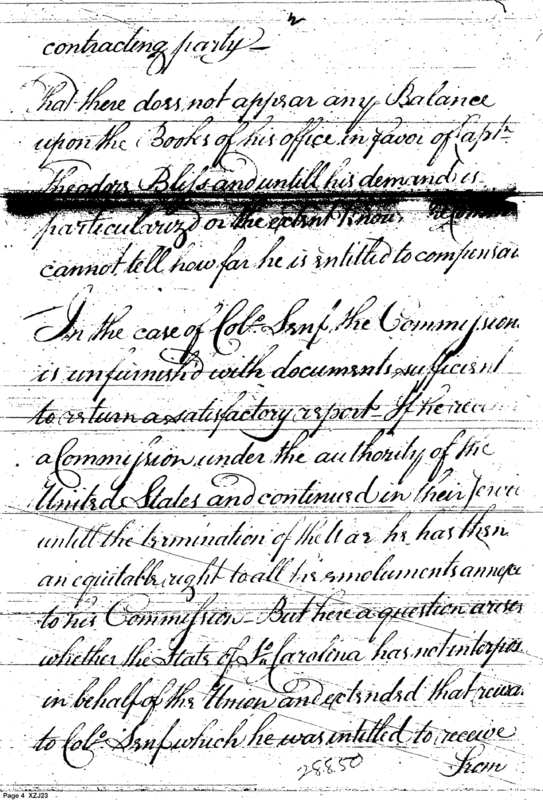 2
contracting party –
That there does not appear any Balance
upon the Books of his office in favor of Capt.
Theodore Bliss and untill his demand is
particularized or the extent know
cannot tell how far he is entitled to compensa
In the case of Colo. Senf, the Commission
is unfurnish'd with documents sufficient
to return a satisfactory report – If he rece
a Commission under the authority of the
United States and continued in their
untill the termination of the War he has then
an equitable right to all the emoluments annex
to his Commission – But here a question arises
whether the State of So. Carolina has not interpos
in behalf of the Union and extended that rewa
to Colo. Senf which he was intitled to receive
From
28850
Page 4 XZJ23